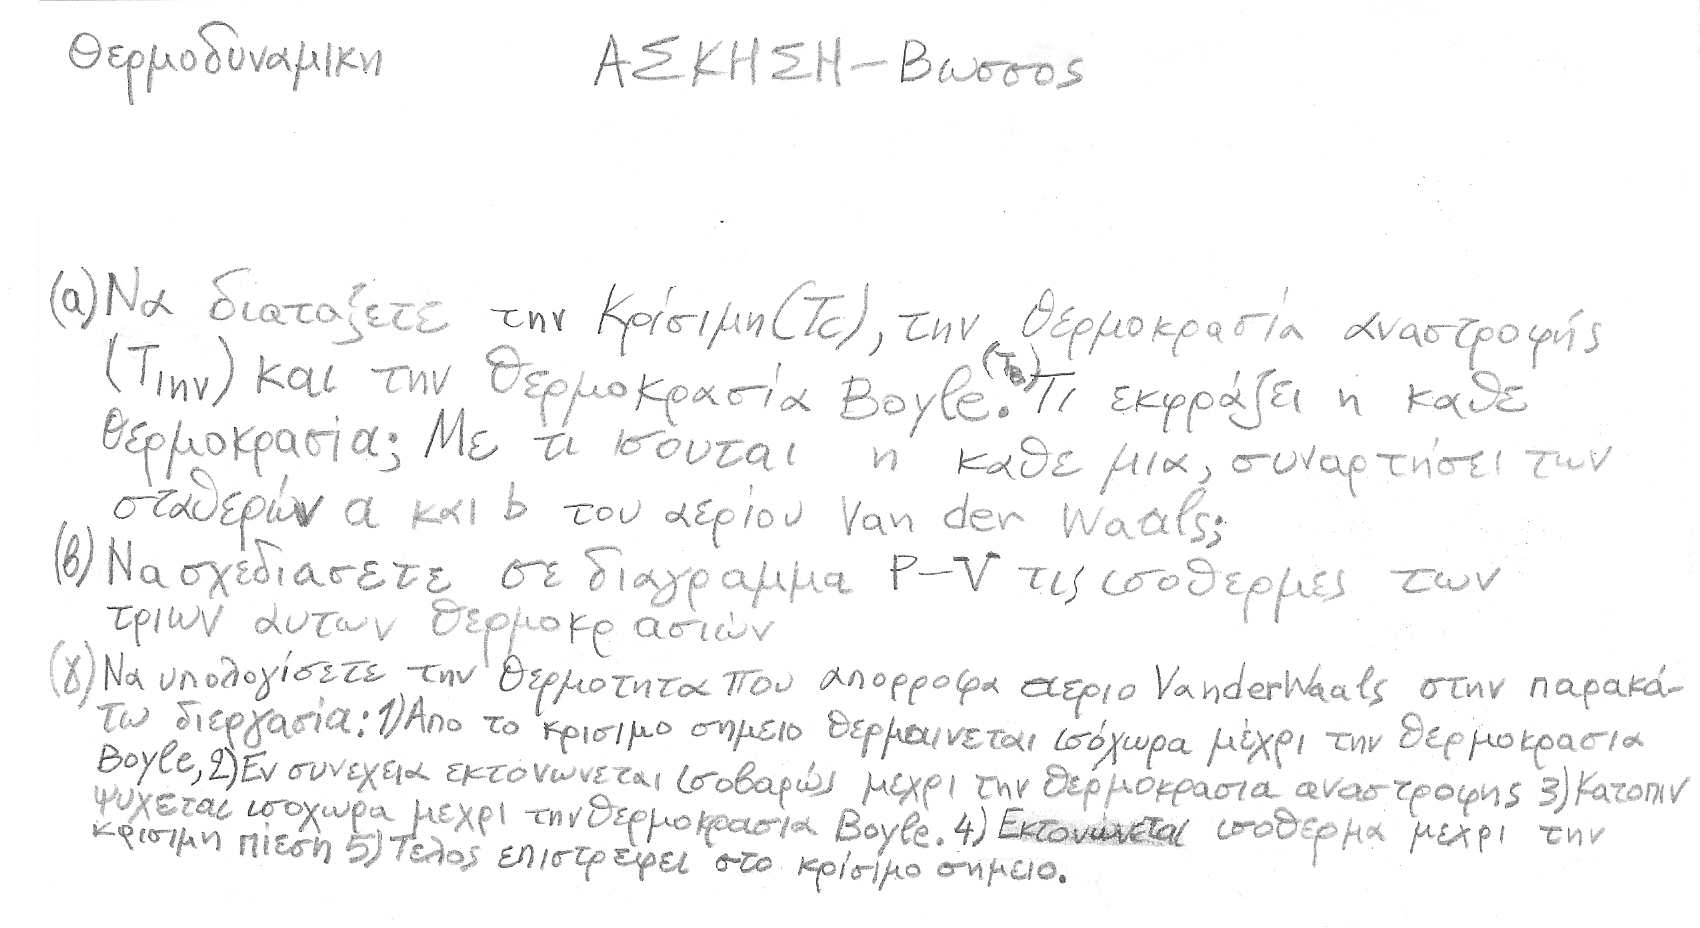 Θερμοδυναμικη ΑΣΚΗΣΗ-Βωσσος
(α) Να διαταξετε την Κρίσιμη (Tc), την θερμοκρασία αναστροφής
(Τιην) και την θερμοκρασία Boyle. (Τb) Τι εκφράζει η καθε
θερμοκρασία; Με τι ισουται η καθε μια, συναρτήσει των
σταθερών a και b του αερίου Van der Waals;
(β) Να σχεδιασετε σε διαγραμμα P-V τις ισοθερμες των
τριων αυτων θερμοκρασιών
(γ) Να υπολογίσετε την θερμοτητα που απορροφα αεριο Van der Waals στην παρακά-
τω διεργασία: 1) Απο το κρισιμο σημειο θερμαινεται ισόχωρα μέχρι την θερμοκρασια
Boyle, 2) Εν συνεχεια εκτονωνεται ισοβαρώς μεχρι την θερμοκρασια αναστροφης 3) Κατοπιν
ψυχεται ισοχωρα μεχρι την θερμοκρασια Boyle. 4) Εκτονώνεται ισοθερμα μεχρι την
κρισιμη πίεση 5) Τελος επιστρεφει στο κρίσιμο σημειο.